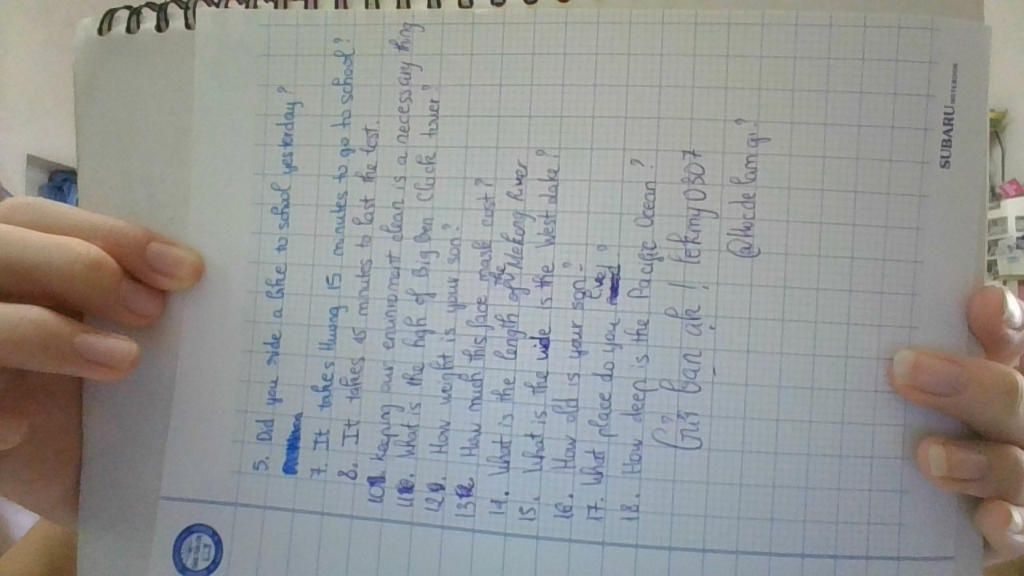 5. Did you ride a bike to school yesterday?
7. It takes Huong 15 minutes to go to school?
8. It takes 45 minutes to last the test.
10. Keeping our environment clean is a necessary thing
11. What is the high of Big Ben Clock tower?
12. How weight is your son?
13. How much this face mask cost?
14. What is the length of the Mekong River
15. What is the wide is the West Lake?
16. How old is your son?
17. What place do you live?
18. How deep is the Pacific Ocean?
Gửi bạn ak! lekmy0307
@hocdelamgi?
SUBARU NOTEBOOK